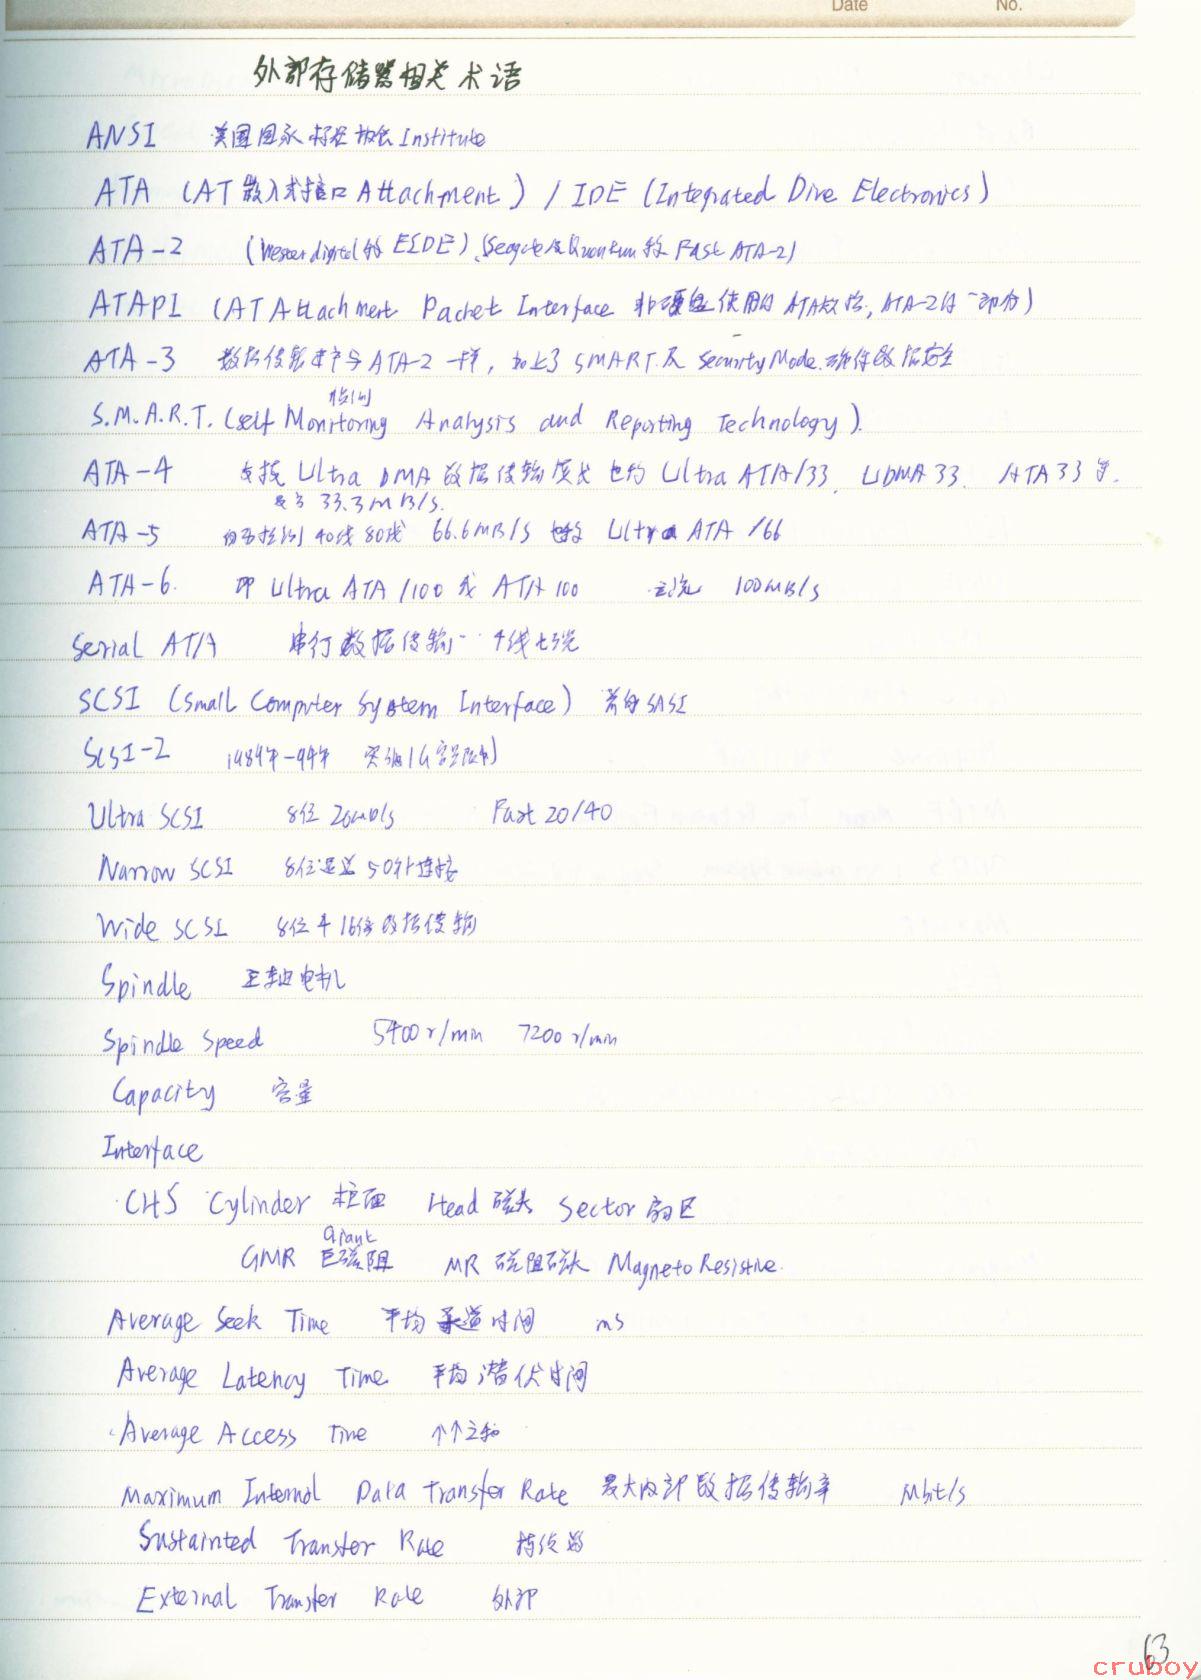 Date No.
外部存储器相关术语
ANSI 美国国家标准协会 Institute
ATA (AT嵌入式接口 Attachment) / IDE (Integrated Dive Electronics)
ATA-2 (Wester digital的 EIDE)、(Seagate及Quantum的 Fast ATA-2)
ATAPI (AT Attachment Packet Interface 非硬盘使用的 ATA, ATA-2的一部分)
ATA-3 数据传输率与ATA-2一样, 加上了 SMART 及 Security Mode. 数据安全
检测
S.M.A.R.T. (Self Monitoring Analysis and Reporting Technology).
ATA-4 支持 Ultra DMA 数据传输模式 也称 Ultra ATA/33. UDMA 33. ATA33等.
33.3MB/s.
ATA-5 检测 40线80线 66.6MB/s 也称 Ultra ATA /66
ATA-6. 即 Ultra ATA /100 或 ATA 100 主流 100MB/s
Serial ATA 串行数据传输 4线
SCSI (Small Computer System Interface) SASI
SCSI-2 1984年-94年
Ultra SCSI 8位 20MB/s Fast 20/40
Narrow SCSI 8位 50针连接
Wide SCSI 8位 16位数据传输
Spindle 主轴电机
Spindle Speed 5400 r/min 7200 r/min
Capacity 容量
Interface
CHS Cylinder 柱面 Head 磁头 Sector 扇区
Giant
GMR 巨磁阻 MR 磁阻磁头 MagnetoResistive.
Average Seek Time 平均寻道时间 ms
Average Latency Time 平均潜伏时间
Average Access Time 个个之和
Maximum Internal Data Transfer Rate 最大内部数据传输率 Mbit/s
Sustainted Transfer Rate 持续
External Transfer Rate 外部
63
cruboy